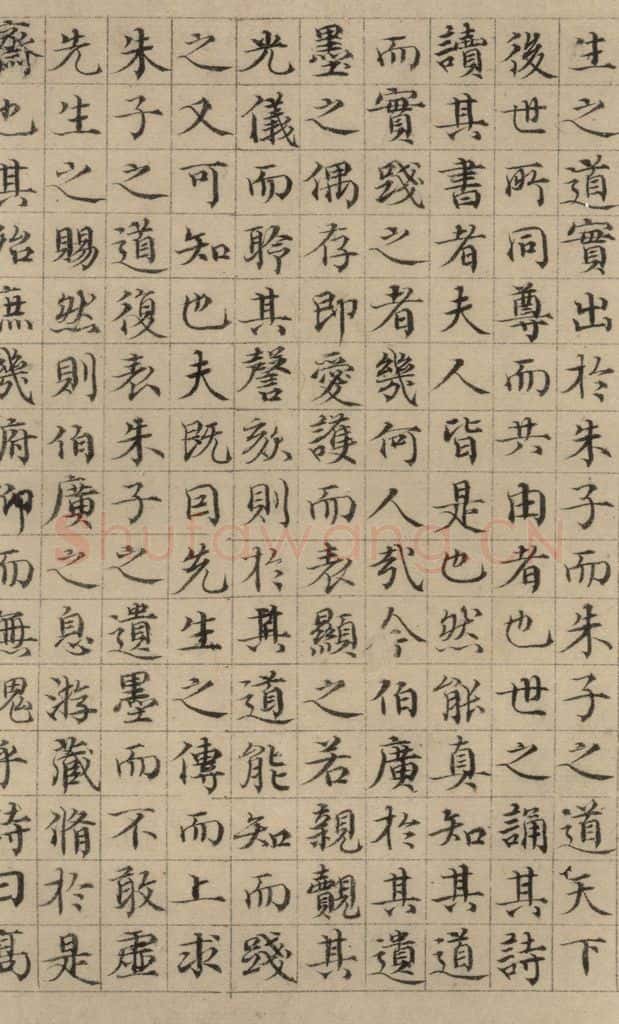 生之道實出於朱子而朱子之道天下
後世所同尊而共由者也世之誦其詩
讀其書者夫人皆是也然能真知其道
而實踐之者幾何人哉今伯廣於其遺
墨之偶存即愛護而表顯之若親覿其
光儀而聆其謦欬則於其道能知而踐
之又可知也夫既因先生之傳而上求
朱子之道復表朱子之遺墨而不敢虛
先生之賜然則伯廣之息游藏脩於是
齋也其殆庶幾俯仰而無愧乎詩曰高
Shufawang.CN